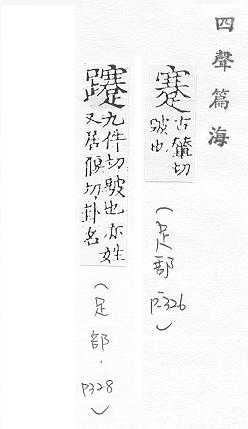 四聲篇海
蹇
古輦切
跛也
(足部
P.326)
九件切跛也亦姓
又居偃切卦名
(足部.
P328)